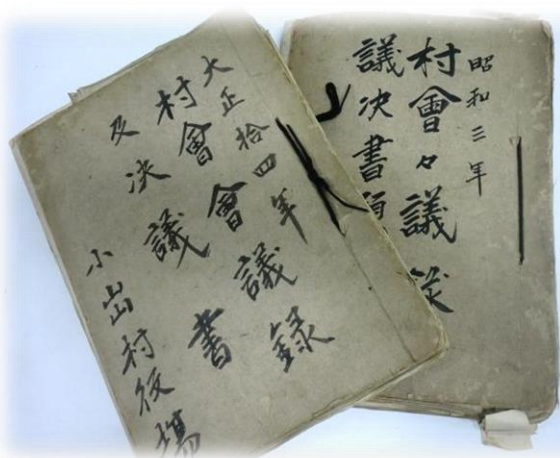 大正拾四年
村會會議録
及決議書
小山村役場
昭和三年
村會々議録
議决書